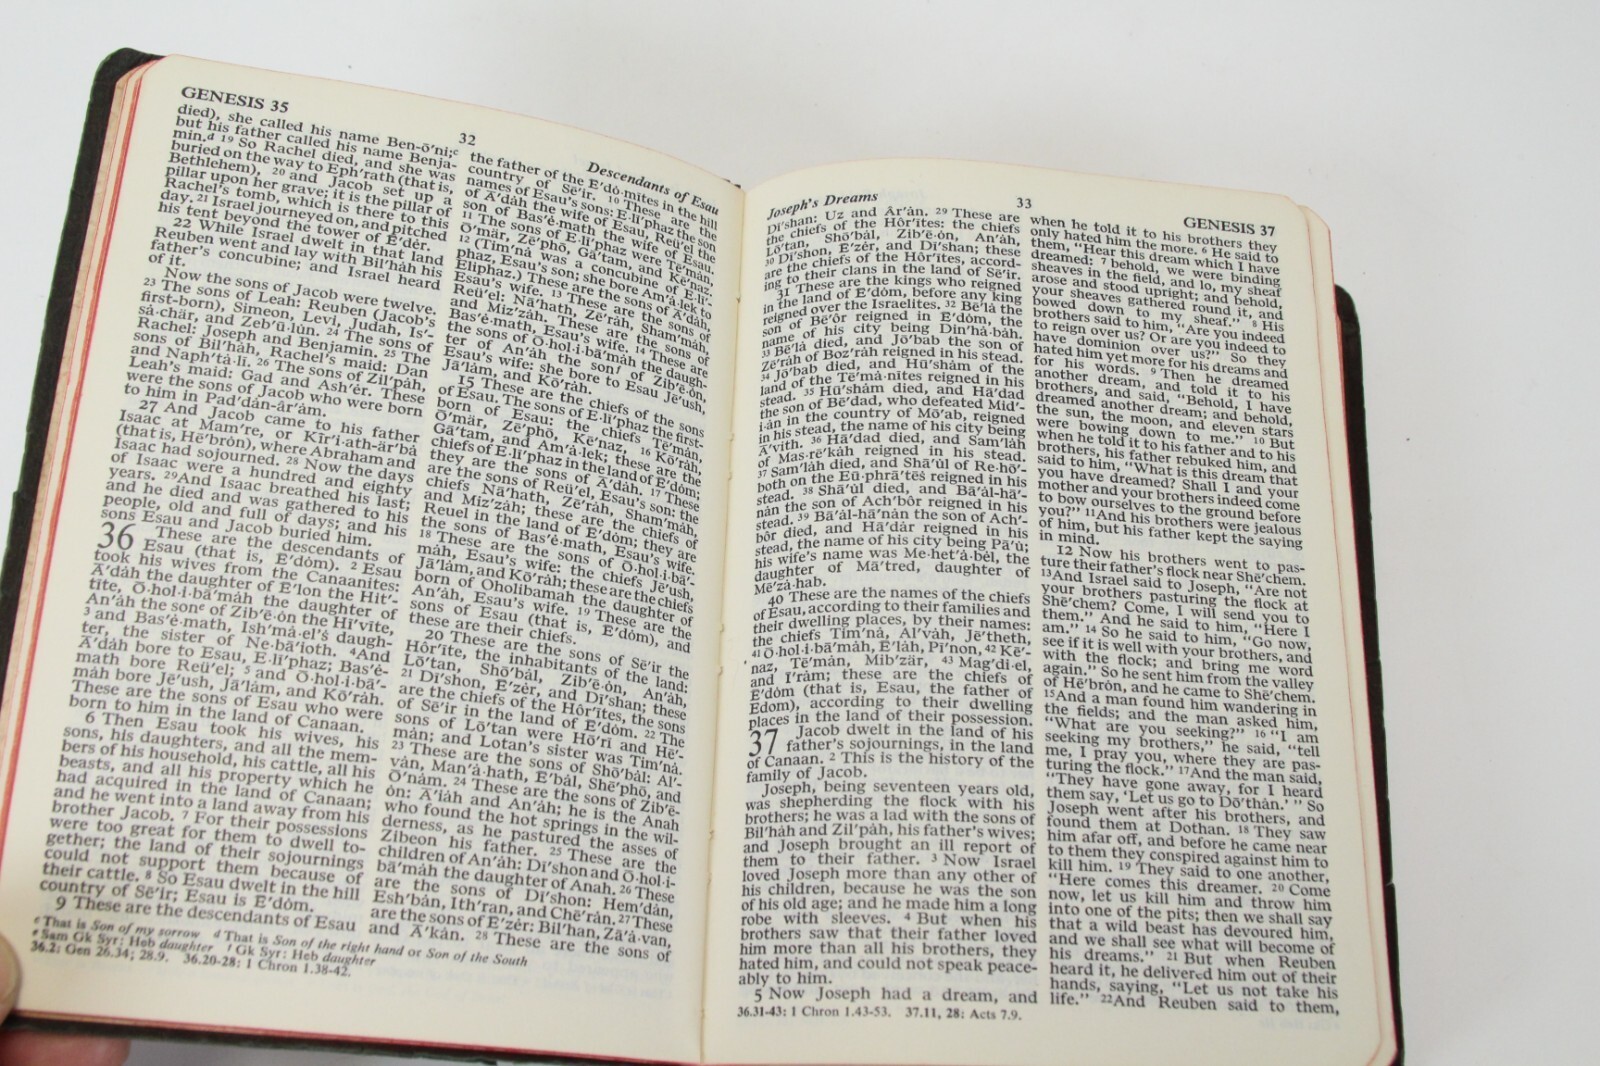 GENESIS 35
32
Descendants of Esau
died), she called his name Ben-ō′ni;ᶜ
but his father called his name Benja-
min.ᵈ 19 So Rachel died, and she was
buried on the way to Eph′rath (that is,
Bethlehem), 20 and Jacob set up a
pillar upon her grave; it is the pillar of
Rachel's tomb, which is there to this
day. 21 Israel journeyed on, and pitched
his tent beyond the tower of E′dėr.
22 While Israel dwelt in that land
Reuben went and lay with Bil′hȧh his
father's concubine; and Israel heard
of it.
Now the sons of Jacob were twelve.
23 The sons of Leah: Reuben (Jacob's
first-born), Simeon, Levi, Judah, Is′-
sȧ·chär, and Zeb′ū·lun. 24 The sons of
Rachel: Joseph and Benjamin. 25 The
sons of Bil′hȧh, Rachel's maid: Dan
and Naph′tȧ·li. 26 The sons of Zil′pȧh,
Leah's maid: Gad and Ash′ėr. These
were the sons of Jacob who were born
to him in Pad′dȧn-âr′ȧm.
27 And Jacob came to his father
Isaac at Mam′re, or Kïr′i·ath-är′bȧ
(that is, Hē′brȯn), where Abraham and
Isaac had sojourned. 28 Now the days
of Isaac were a hundred and eighty
years. 29 And Isaac breathed his last;
and he died and was gathered to his
people, old and full of days; and his
sons Esau and Jacob buried him.
36 These are the descendants of
Esau (that is, E′dȯm). 2 Esau
took his wives from the Canaanites:
Ā′dȧh the daughter of E′lon the Hit′-
tīte, Ō·hol·i·bā′mȧh the daughter of
An′ȧh the sonᵉ of Zib′ē·ȯn the Hī′vīte,
3 and Bas′ė·math, Ish′mȧ·el's̈ daugh-
ter, the sister of Ne·bā′ioth. 4 And
Ā′dȧh bore to Esau, E·lī′phaz; Bas′ė-
math bore Reü′el; 5 and Ō·hol·i·bā′-
mȧh bore Jē′ush, Jā′lȧm, and Kō′rȧh.
These are the sons of Esau who were
born to him in the land of Canaan.
6 Then Esau took his wives, his
sons, his daughters, and all the mem-
bers of his household, his cattle, all his
beasts, and all his property which he
had acquired in the land of Canaan;
and he went into a land away from his
brother Jacob. 7 For their possessions
were too great for them to dwell to-
gether; the land of their sojournings
could not support them because of
their cattle. 8 So Esau dwelt in the hill
country of Sē′ir; Esau is E′dȯm.
9 These are the descendants of Esau
the father of the E′dȯ·mītes in the hill
country of Sē′ir. 10 These are the
names of Esau's sons: E·lī′phaz the son
of Ā′dȧh the wife of Esau, Reü′el the
son of Bas′ė·math the wife of Esau.
11 The sons of E·lī′phaz were Tē′mȧn,
Ō′mȧr, Zē′phō, Gā′tam, and Kē′naz.
12 (Tim′nȧ was a concubine of E·lī′-
phaz, Esau's son; she bore Am′ȧ·lek to
Eliphaz.) These are the sons of Ā′dȧh,
Esau's wife. 13 These are the sons of
Reü′el: Nā′hath, Zē′rȧh, Sham′mȧh,
and Miz′zȧh. These are the sons of
Bas′ė·math, Esau's wife. 14 These are
the sons of Ō·hol·i·bā′mȧh the daugh-
ter of An′ȧh the sonᶠ of Zib′ē·ȯn,
Esau's wife: she bore to Esau Jē′ush,
Jā′lȧm, and Kō′rȧh.
15 These are the chiefs of the sons
of Esau. The sons of E·lī′phaz the first-
born of Esau: the chiefs Tē′mȧn,
Ō′mȧr, Zē′phō, Kē′naz, 16 Kō′rȧh,
Gā′tam, and Am′ȧ·lek; these are the
chiefs of E·lī′phaz in the land of E′dȯm;
they are the sons of Ā′dȧh. 17 These
are the sons of Reü′el, Esau's son: the
chiefs Nā′hath, Zē′rȧh, Sham′mȧh,
and Miz′zȧh; these are the chiefs of
Reuel in the land of E′dȯm; they are
the sons of Bas′ė·math, Esau's wife.
18 These are the sons of Ō·hol·i·bā′-
mȧh, Esau's wife: the chiefs Jē′ush,
Jā′lȧm, and Kō′rȧh; these are the chiefs
born of Oholibamah the daughter of
An′ȧh, Esau's wife. 19 These are the
sons of Esau (that is, E′dȯm), and
these are their chiefs.
20 These are the sons of Sē′ir the
Hôr′īte, the inhabitants of the land:
Lō′tan, Shō′bȧl, Zib′ē·ȯn, An′ȧh,
21 Dī′shon, E′zėr, and Dī′shan; these
are the chiefs of the Hôr′ītes, the sons
of Sē′ir in the land of E′dȯm. 22 The
sons of Lō′tan were Hō′rī and Hē′-
mȧn; and Lotan's sister was Tim′nȧ.
23 These are the sons of Shō′bȧl: Al′-
vȧn, Man′ȧ·hath, E′bȧl, Shē′phō, and
Ō′nȧm. 24 These are the sons of Zib′ē-
ȯn: Ā′iȧh and An′ȧh; he is the Anah
who found the hot springs in the wil-
derness, as he pastured the asses of
Zibeon his father. 25 These are the
children of An′ȧh: Dī′shon and Ō·hol·i-
bā′mȧh the daughter of Anah. 26 These
are the sons of Dī′shon: Hem′dȧn,
Esh′bȧn, Ith′ran, and Chē′rȧn. 27 These
are the sons of E′zėr: Bil′han, Zā′ȧ·van,
and Ā′kȧn. 28 These are the sons of
ᶜ That is Son of my sorrow ᵈ That is Son of the right hand or Son of the South
ᵉ Sam Gk Syr: Heb daughter ᶠ Gk Syr: Heb daughter
36.2: Gen 26.34; 28.9. 36.20-28: 1 Chron 1.38-42.
Joseph's Dreams
33
GENESIS 37
Dī′shan: Uz and Âr′ȧn. 29 These are
the chiefs of the Hôr′ītes: the chiefs
Lō′tan, Shō′bȧl, Zib′ē·ȯn, An′ȧh,
30 Dī′shon, E′zėr, and Dī′shan; these
are the chiefs of the Hôr′ītes, accord-
ing to their clans in the land of Sē′ir.
31 These are the kings who reigned
in the land of E′dȯm, before any king
reigned over the Israelites. 32 Bē′lȧ the
son of Bē′ôr reigned in E′dȯm, the
name of his city being Din′hȧ·bȧh.
33 Bē′lȧ died, and Jō′bab the son of
Zē′rȧh of Boz′rȧh reigned in his stead.
34 Jō′bab died, and Hū′shȧm of the
land of the Tē′mȧ·nītes reigned in his
stead. 35 Hū′shȧm died, and Hā′dad
the son of Bē′dad, who defeated Mid′-
i·ȧn in the country of Mō′ab, reigned
in his stead, the name of his city being
Ā′vith. 36 Hā′dad died, and Sam′lȧh
of Mas·rē′kȧh reigned in his stead.
37 Sam′lȧh died, and Shā′ūl of Re·hō′-
both on the Eü·phrā′tēs̈ reigned in his
stead. 38 Shā′ūl died, and Bā′ȧl-hā′-
nȧn the son of Ach′bôr reigned in his
stead. 39 Bā′ȧl-hā′nȧn the son of Ach′-
bôr died, and Hā′dȧr reigned in his
stead, the name of his city being Pā′ū;
his wife's name was Me·het′ȧ·bėl, the
daughter of Mā′tred, daughter of
Mē′zȧ·hab.
40 These are the names of the chiefs
of Esau, according to their families and
their dwelling places, by their names:
the chiefs Tim′nȧ, Al′vȧh, Jē′theth,
41 Ō·hol·i·bā′mȧh, E′lȧh, Pī′non, 42 Kē′-
naz, Tē′mȧn, Mib′zär, 43 Mag′di·el,
and Ī′rȧm; these are the chiefs of
E′dȯm (that is, Esau, the father of
Edom), according to their dwelling
places in the land of their possession.
37 Jacob dwelt in the land of his
father's sojournings, in the land
of Canaan. 2 This is the history of the
family of Jacob.
Joseph, being seventeen years old,
was shepherding the flock with his
brothers; he was a lad with the sons of
Bil′hȧh and Zil′pȧh, his father's wives;
and Joseph brought an ill report of
them to their father. 3 Now Israel
loved Joseph more than any other of
his children, because he was the son
of his old age; and he made him a long
robe with sleeves. 4 But when his
brothers saw that their father loved
him more than all his brothers, they
hated him, and could not speak peace-
ably to him.
5 Now Joseph had a dream, and
when he told it to his brothers they
only hated him the more. 6 He said to
them, "Hear this dream which I have
dreamed: 7 behold, we were binding
sheaves in the field, and lo, my sheaf
arose and stood upright; and behold,
your sheaves gathered round it, and
bowed down to my sheaf." 8 His
brothers said to him, "Are you indeed
to reign over us? Or are you indeed to
have dominion over us?" So they
hated him yet more for his dreams and
for his words. 9 Then he dreamed
another dream, and told it to his
brothers, and said, "Behold, I have
dreamed another dream; and behold,
the sun, the moon, and eleven stars
were bowing down to me." 10 But
when he told it to his father and to his
brothers, his father rebuked him, and
said to him, "What is this dream that
you have dreamed? Shall I and your
mother and your brothers indeed come
to bow ourselves to the ground before
you?" 11 And his brothers were jealous
of him, but his father kept the saying
in mind.
12 Now his brothers went to pas-
ture their father's flock near Shē′chem.
13 And Israel said to Joseph, "Are not
your brothers pasturing the flock at
Shē′chem? Come, I will send you to
them." And he said to him, "Here I
am." 14 So he said to him, "Go now,
see if it is well with your brothers, and
with the flock; and bring me word
again." So he sent him from the valley
of Hē′brȯn, and he came to Shē′chem.
15 And a man found him wandering in
the fields; and the man asked him,
"What are you seeking?" 16 "I am
seeking my brothers," he said, "tell
me, I pray you, where they are pas-
turing the flock." 17 And the man said,
"They have gone away, for I heard
them say, 'Let us go to Dō′thȧn.' " So
Joseph went after his brothers, and
found them at Dothan. 18 They saw
him afar off, and before he came near
to them they conspired against him to
kill him. 19 They said to one another,
"Here comes this dreamer. 20 Come
now, let us kill him and throw him
into one of the pits; then we shall say
that a wild beast has devoured him,
and we shall see what will become of
his dreams." 21 But when Reuben
heard it, he delivered him out of their
hands, saying, "Let us not take his
life." 22 And Reuben said to them,
36.31-43: 1 Chron 1.43-53. 37.11, 28: Acts 7.9.